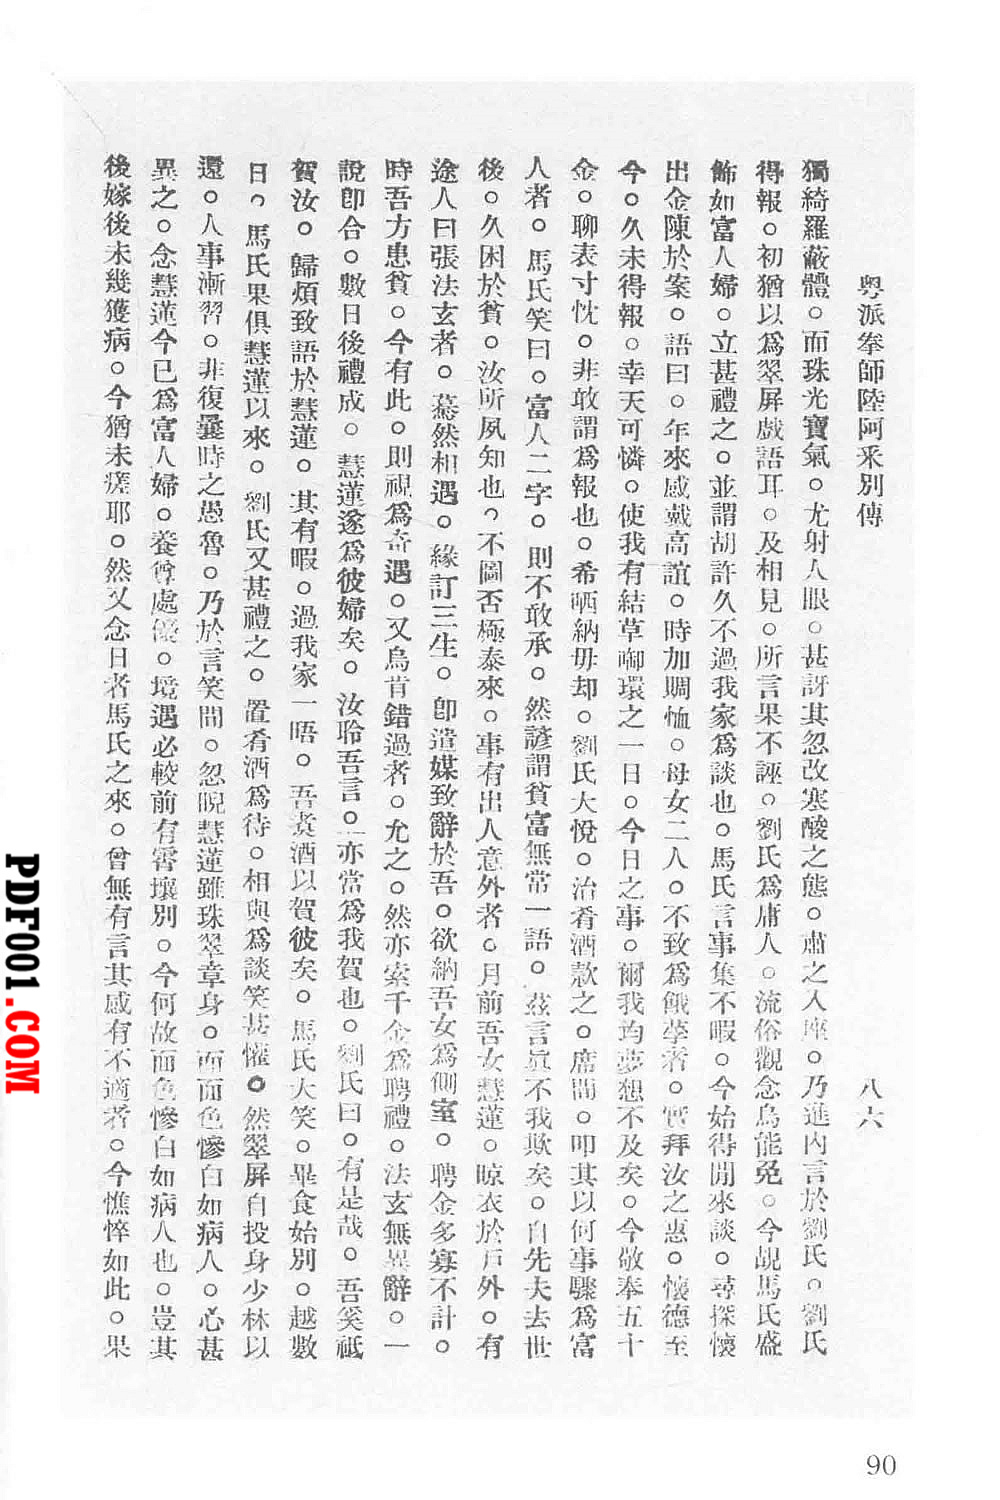 粵派拳師陸阿采別傳
八六
獨綺羅蔽體。而珠光寶氣。尤射人眼。甚訝其忽改寒酸之態。肅之入座。乃進內言於劉氏。劉氏
得報。初猶以爲翠屏戲語耳。及相見。所言果不誣。劉氏爲庸人。流俗觀念烏能免。今覩馬氏盛
飾如富人婦。立甚禮之。並謂胡許久不過我家爲談也。馬氏言事集不暇。今始得閒來談。尋探懷
出金陳於案。語曰。年來感戴高誼。時加賙恤。母女二人。不致爲餓莩者。實拜汝之惠。懷德至
今。久未得報。幸天可憐。使我有結草啣環之一日。今日之事。爾我均夢想不及矣。今敬奉五十
金。聊表寸忱。非敢謂爲報也。希哂納毋却。劉氏大悅。治肴酒款之。席間。叩其以何事驟爲富
人者。馬氏笑曰。富人二字。則不敢承。然諺謂貧富無常一語。茲言眞不我欺矣。自先夫去世
後。久困於貧。汝所夙知也。不圖否極泰來。事有出人意外者。月前吾女慧蓮。晾衣於戶外。有
途人曰張法玄者。驀然相遇。緣訂三生。卽遣媒致辭於吾。欲納吾女爲側室。聘金多寡不計。
時吾方患貧。今有此。則視爲奇遇。又烏肯錯過者。允之。然亦索千金爲聘禮。法玄無異辭。一
說卽合。數日後禮成。慧蓮遂爲彼婦矣。汝聆吾言。亦當爲我賀也。劉氏曰。有是哉。吾奚祗
賀汝。歸煩致語於慧蓮。其有暇。過我家一晤。吾煑酒以賀彼矣。馬氏大笑。畢食始別。越數
日。馬氏果俱慧蓮以來。劉氏又甚禮之。置肴酒爲待。相與爲談笑甚懽。然翠屏自投身少林以
還。人事漸習。非復曩時之愚魯。乃於言笑間。忽睨慧蓮雖珠翠章身。而面色慘白如病人。心甚
異之。念慧蓮今已爲富人婦。養尊處優。境遇必較前有霄壤別。今何故面色慘白如病人也。豈其
後嫁後未幾獲病。今猶未瘥耶。然又念日者馬氏之來。曾無有言其感有不適者。今憔悴如此。果
90
PDF001.COM